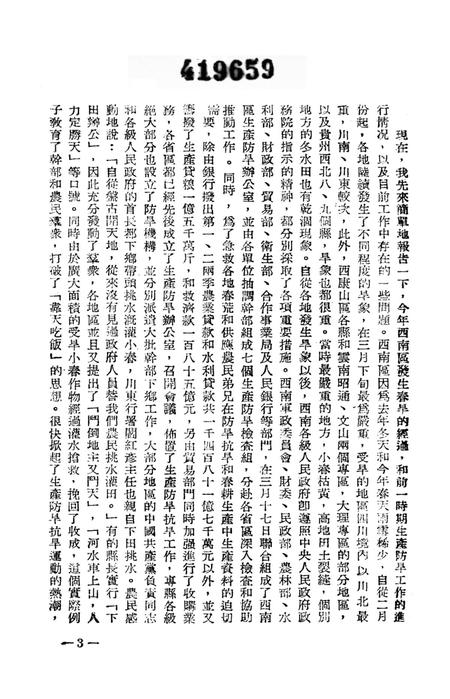 419659
現在，我先來簡單地報告一下，今年西南區發生春旱的經過，和前一時期生產防旱工作的進
行情况，以及目前工作中存在的一些問題。西南區因爲去年冬天和今年春天雨雪稀少，自從二月
份起，各地陸續發生了不同程度的旱象，在三月下旬最爲嚴重，受旱的地區四川境內以川北最
重，川南、川東較次，此外，西康山區各縣和雲南昭通、文山兩個專區，大理專區的部分地區，
以及貴州西北八、九個縣，旱象也都很重。當時最嚴重的地方，小春枯黃，高地田土裂縫，個別
地方的冬水田也有乾涸現象。自從各地發生旱象以後，西南各級人民政府卽遵照中央人民政府政
務院的指示的精神，都分別採取了各項重要措施。西南軍政委員會、財委、民政部、農林部、水
利部、財政部、貿易部、衛生部、合作事業局及人民銀行等部門，在三月十七日聯合組成了西南
區生產防旱辦公室，並由各單位抽調幹部組成七個生產防旱檢查組，分赴各省區深入檢查和協助
推動工作。同時，爲了急救各地春荒和供應農民弟兄在防旱抗旱和春耕生產中生產資料的迫切
需要，除由銀行撥出第一、二兩季農業貸款和水利貸款共一千四百八十一億七千萬元以外，並又
籌撥了生產貸糧一億五千萬斤，和救濟款一百八十五億元，另由貿易部門同時加强進行了收購業
務，各省區都已經先後成立了生產防旱辦公室，召開會議，佈置了生產防旱抗旱工作，專縣各級
絕大部分也設立了防旱機構，並分別派遣大批幹部下鄉工作，大部分地區的中國共產黨負責同志
和各級人民政府的首長都下鄉帶頭挑水澆灌小春，川東行署閻紅彥主任也親自下田挑水。農民感
動地說：「自從盤古開天地，從來沒有見過政府人員替我們農民挑水灌田。」有的縣長實行「下
田辦公」，因此充分發動了羣衆，各地區並且又提出了「鬥倒地主又鬥天」，「河水車上山，人
力定勝天」等口號。同時由於廣大面積的受旱小春作物經過灌水搶救，挽回了收成，這個實際例
子敎育了幹部和農民羣衆，打破了「靠天吃飯」的思想。很快掀起了生產防旱抗旱運動的熱潮，
—3—